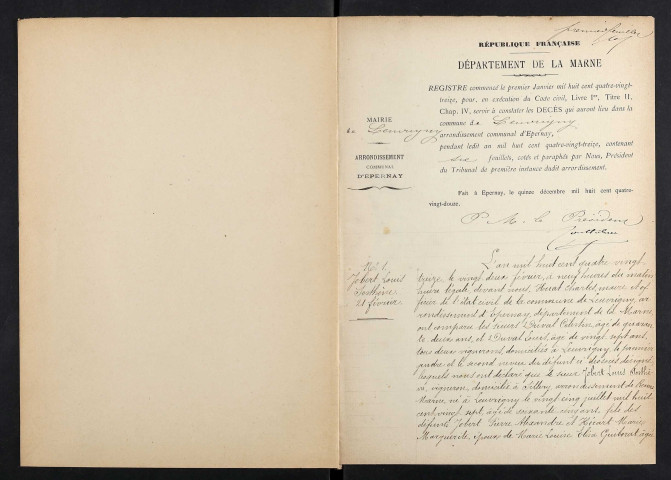 premier feuillet
RÉPUBLIQUE FRANÇAISE
DÉPARTEMENT DE LA MARNE
REGISTRE commencé le premier Janvier mil huit cent quatre-vingt-
treize, pour, en exécution du Code civil, Livre Ier, Titre II,
Chap. IV, servir à constater les DÉCÈS qui auront lieu dans la
commune de Leuvrigny
arrondissement communal d'Epernay,
pendant ledit an mil huit cent quatre-vingt-treize, contenant
six feuillets, cotés et paraphés par Nous, Président
du Tribunal de première instance dudit arrondissement.
MAIRIE
de Leuvrigny
ARRONDISSEMENT
COMMUNAL
D'EPERNAY
Fait à Epernay, le quinze décembre mil huit cent quatre-
vingt-douze.
P. M. le Président
N° 1
Jobert Louis
21 février
L'an mil huit cent quatre vingt
treize, le vingt deux février, à neuf heures du matin
heure légale, devant nous, Charles, maire et of-
ficier de l'état civil de la commune de Leuvrigny, ar-
rondissement d'Epernay, département de la Marne,
ont comparu les sieurs Duval Celestin, âgé de quaran-
te deux ans, et Duval Louis, âgé de vingt sept ans,
tous deux vignerons, domiciliés à Leuvrigny, le premier
gendre et le second neveu du défunt ci-dessous désigné,
lesquels nous ont déclaré que le sieur Jobert Louis
vigneron, domicilié à Sillery, arrondissement de Reims
Marne, né à Leuvrigny le vingt cinq juillet mil huit
cent vingt sept, âgé de soixante cinq ans, fils des
défunts Jobert Pierre Alexandre et Hécart Marie
Marguerite, époux de Marie Louise Eliza âgée